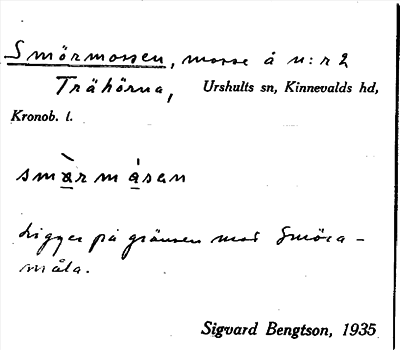 Smörmossen, mosse å n:r 2
Trähörna, Urshults sn, Kinnevalds hd,
Kronob. l.
smàrmásan
Ligger på gränsen mot Smöra-
måla.
Sigvard Bengtson, 1935